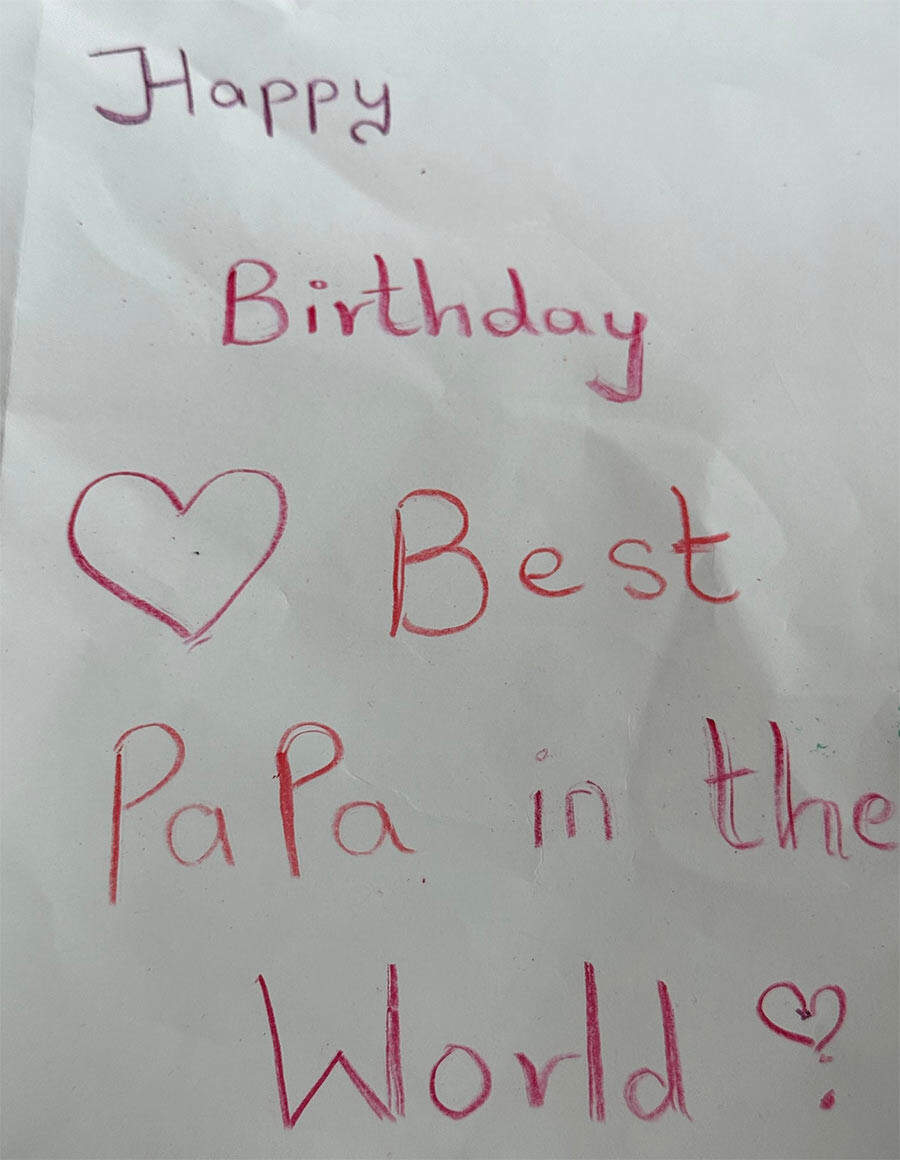 Happy
Birthday
Best
PaPa in the
World